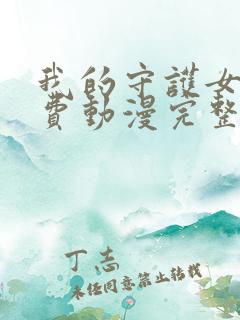 我的守護女
費動漫完整
丁志
未经同意禁止转载